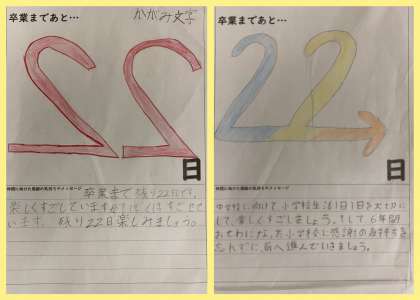 卒業まであと…
かがみ文字
22
日
仲間に向けた感謝の気持ちやメッセージ
卒業まで残り22日です。
楽しくすごしていますか？ぼくはすごせて
います。残り22日楽しみましょう。
卒業まであと…
22
日
仲間に向けた感謝の気持ちやメッセージ
中学校に向けて、小学校生活1日1日を大切に
して、楽しくすごしましょう。そして6年間
おせわになった小学校に感謝の気持ちを
忘れずに、前へ進んでいきましょう。